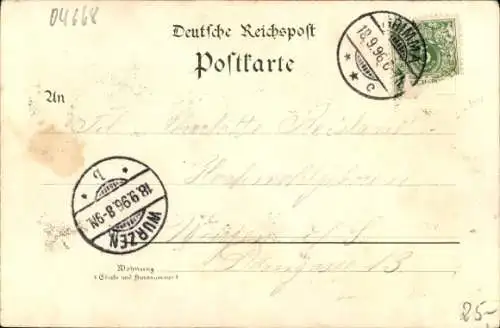 04668
Deutsche Reichspost
Postkarte
GRIMMA
18.9.96.
* * c
An
Frl. Charlotte
Hochwohlgeboren
* b *
18.9.96.8-9N.
WURZEN
Wurzen i/S
13
Wohnung
(Straße und Hausnummer)
25-